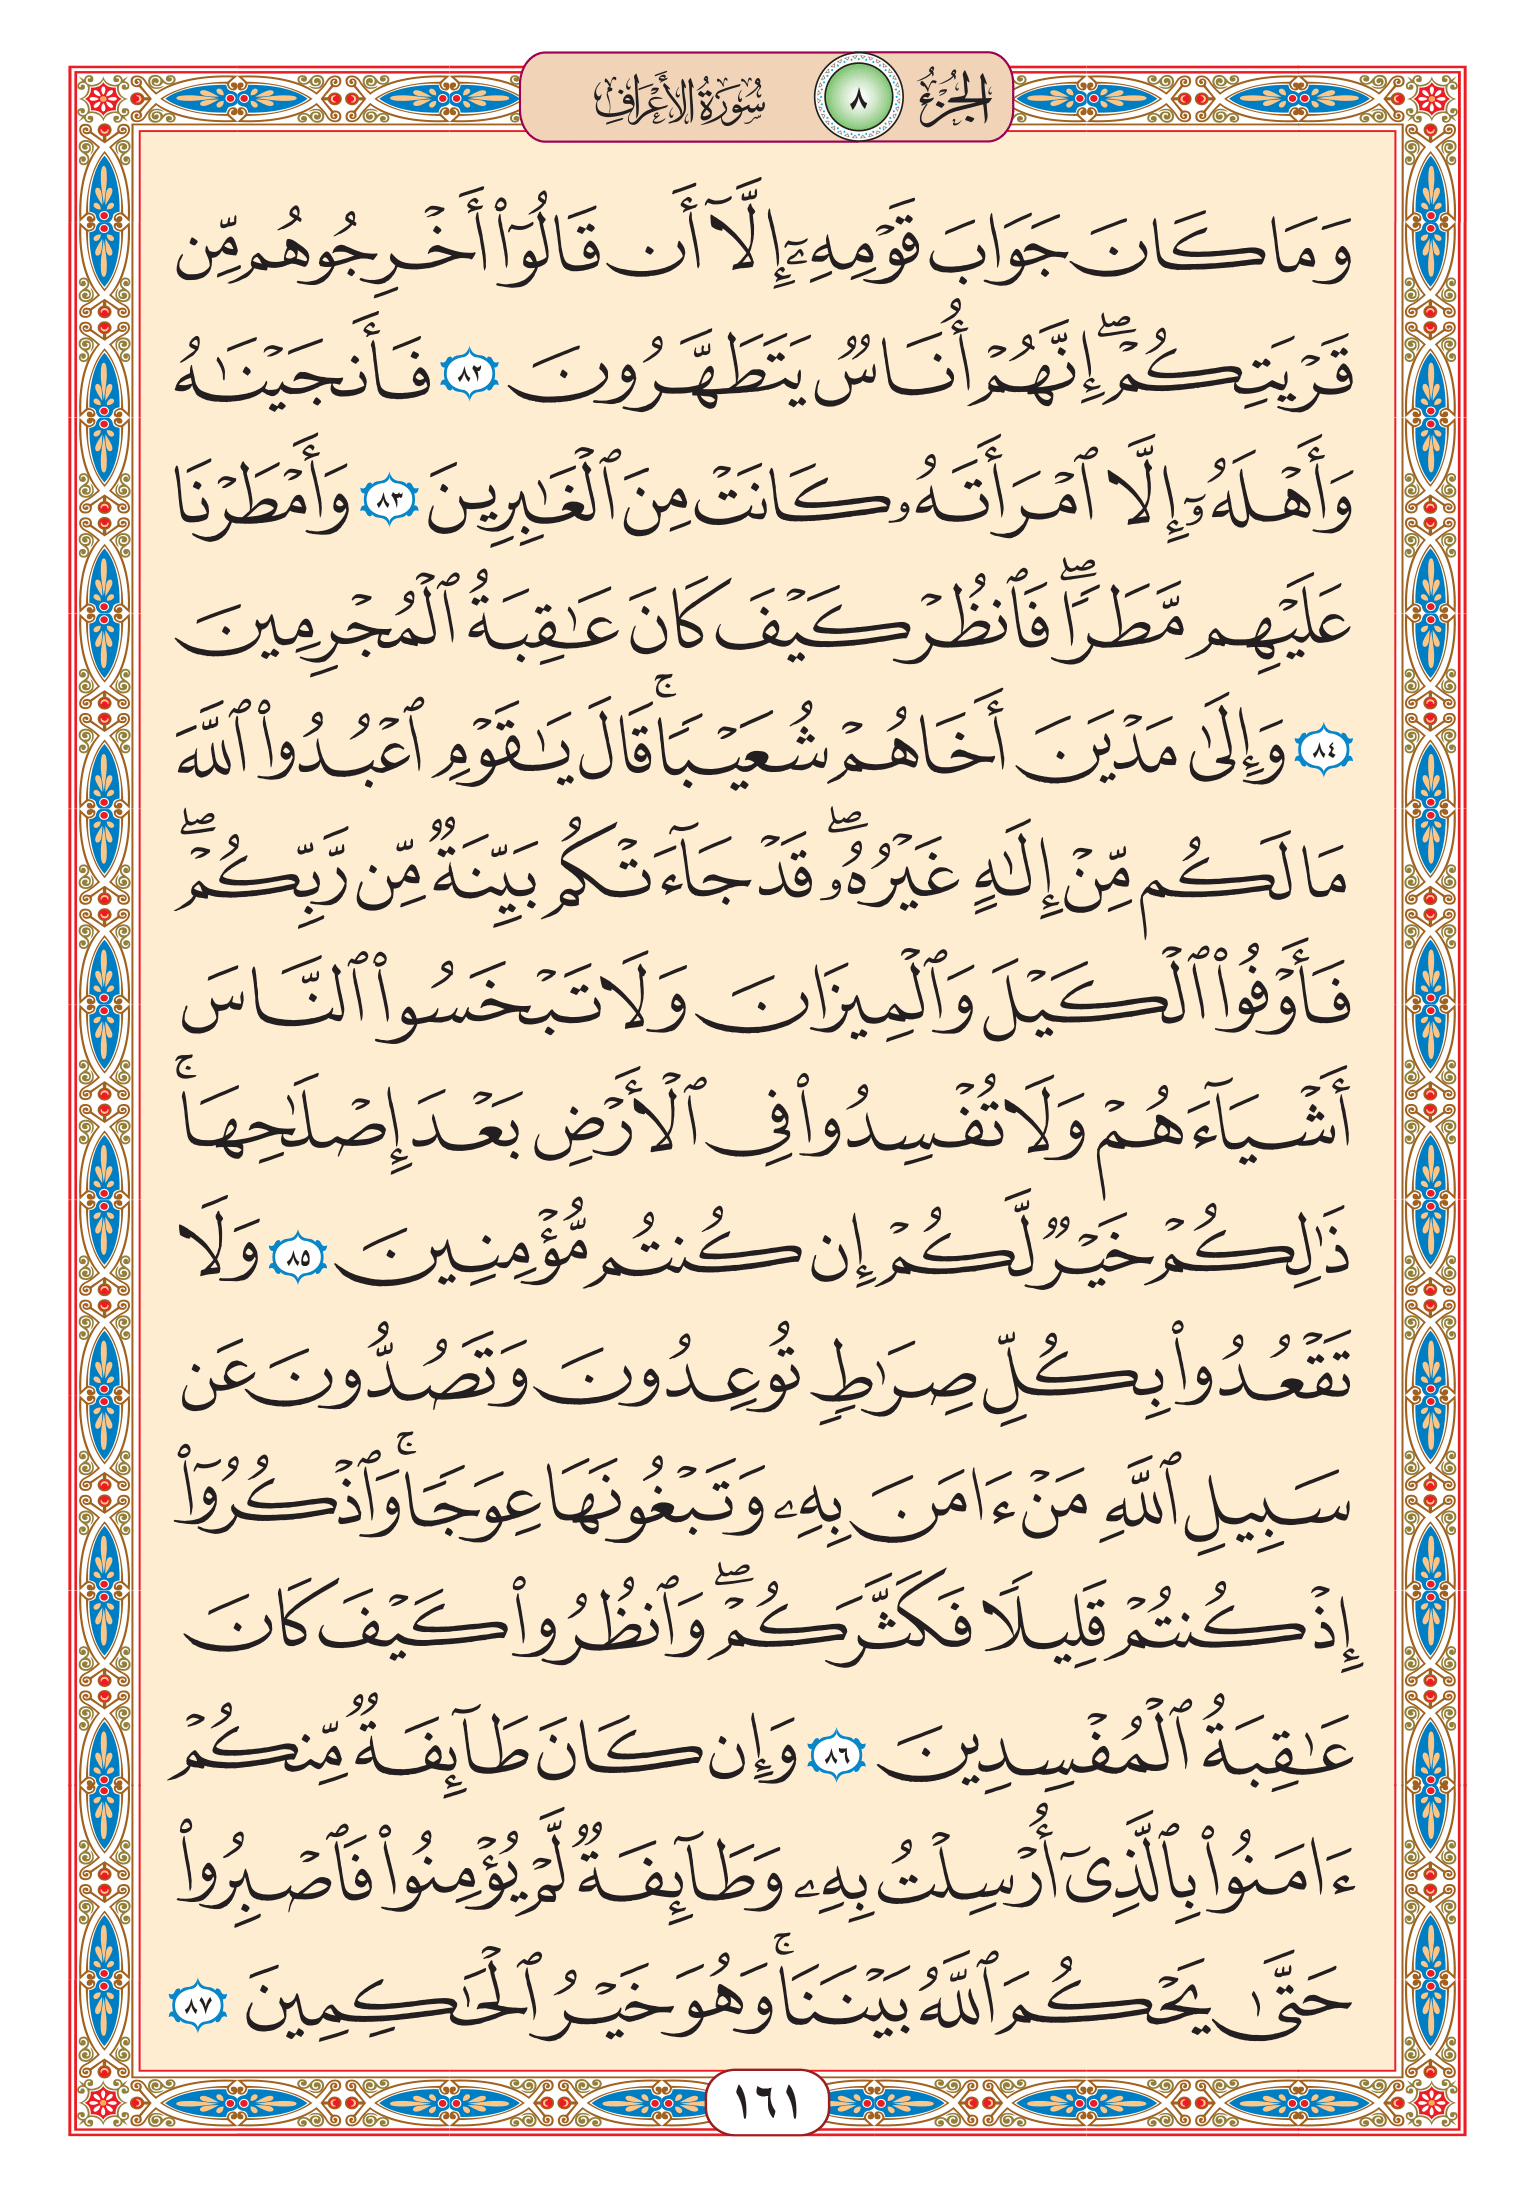 الجزء ٨ سورة الأعراف
وَمَا كَانَ جَوَابَ قَوْمِهِۦٓ إِلَّآ أَن قَالُوٓا۟ أَخْرِجُوهُم مِّن
قَرْيَتِكُمْ ۖ إِنَّهُمْ أُنَاسٌ يَتَطَهَّرُونَ ٨٢ فَأَنجَيْنَـٰهُ
وَأَهْلَهُۥٓ إِلَّا ٱمْرَأَتَهُۥ كَانَتْ مِنَ ٱلْغَـٰبِرِينَ ٨٣ وَأَمْطَرْنَا
عَلَيْهِم مَّطَرًا ۖ فَٱنظُرْ كَيْفَ كَانَ عَـٰقِبَةُ ٱلْمُجْرِمِينَ
٨٤ وَإِلَىٰ مَدْيَنَ أَخَاهُمْ شُعَيْبًا ۚ قَالَ يَـٰقَوْمِ ٱعْبُدُوا۟ ٱللَّهَ
مَا لَكُم مِّنْ إِلَـٰهٍ غَيْرُهُۥ ۖ قَدْ جَآءَتْكُم بَيِّنَةٌ مِّن رَّبِّكُمْ ۖ
فَأَوْفُوا۟ ٱلْكَيْلَ وَٱلْمِيزَانَ وَلَا تَبْخَسُوا۟ ٱلنَّاسَ
أَشْيَآءَهُمْ وَلَا تُفْسِدُوا۟ فِى ٱلْأَرْضِ بَعْدَ إِصْلَـٰحِهَا ۚ
ذَٰلِكُمْ خَيْرٌ لَّكُمْ إِن كُنتُم مُّؤْمِنِينَ ٨٥ وَلَا
تَقْعُدُوا۟ بِكُلِّ صِرَٰطٍ تُوعِدُونَ وَتَصُدُّونَ عَن
سَبِيلِ ٱللَّهِ مَنْ ءَامَنَ بِهِۦ وَتَبْغُونَهَا عِوَجًا ۚ وَٱذْكُرُوٓا۟
إِذْ كُنتُمْ قَلِيلًا فَكَثَّرَكُمْ ۖ وَٱنظُرُوا۟ كَيْفَ كَانَ
عَـٰقِبَةُ ٱلْمُفْسِدِينَ ٨٦ وَإِن كَانَ طَآئِفَةٌ مِّنكُمْ
ءَامَنُوا۟ بِٱلَّذِىٓ أُرْسِلْتُ بِهِۦ وَطَآئِفَةٌ لَّمْ يُؤْمِنُوا۟ فَٱصْبِرُوا۟
حَتَّىٰ يَحْكُمَ ٱللَّهُ بَيْنَنَا ۚ وَهُوَ خَيْرُ ٱلْحَـٰكِمِينَ ٨٧
١٦١